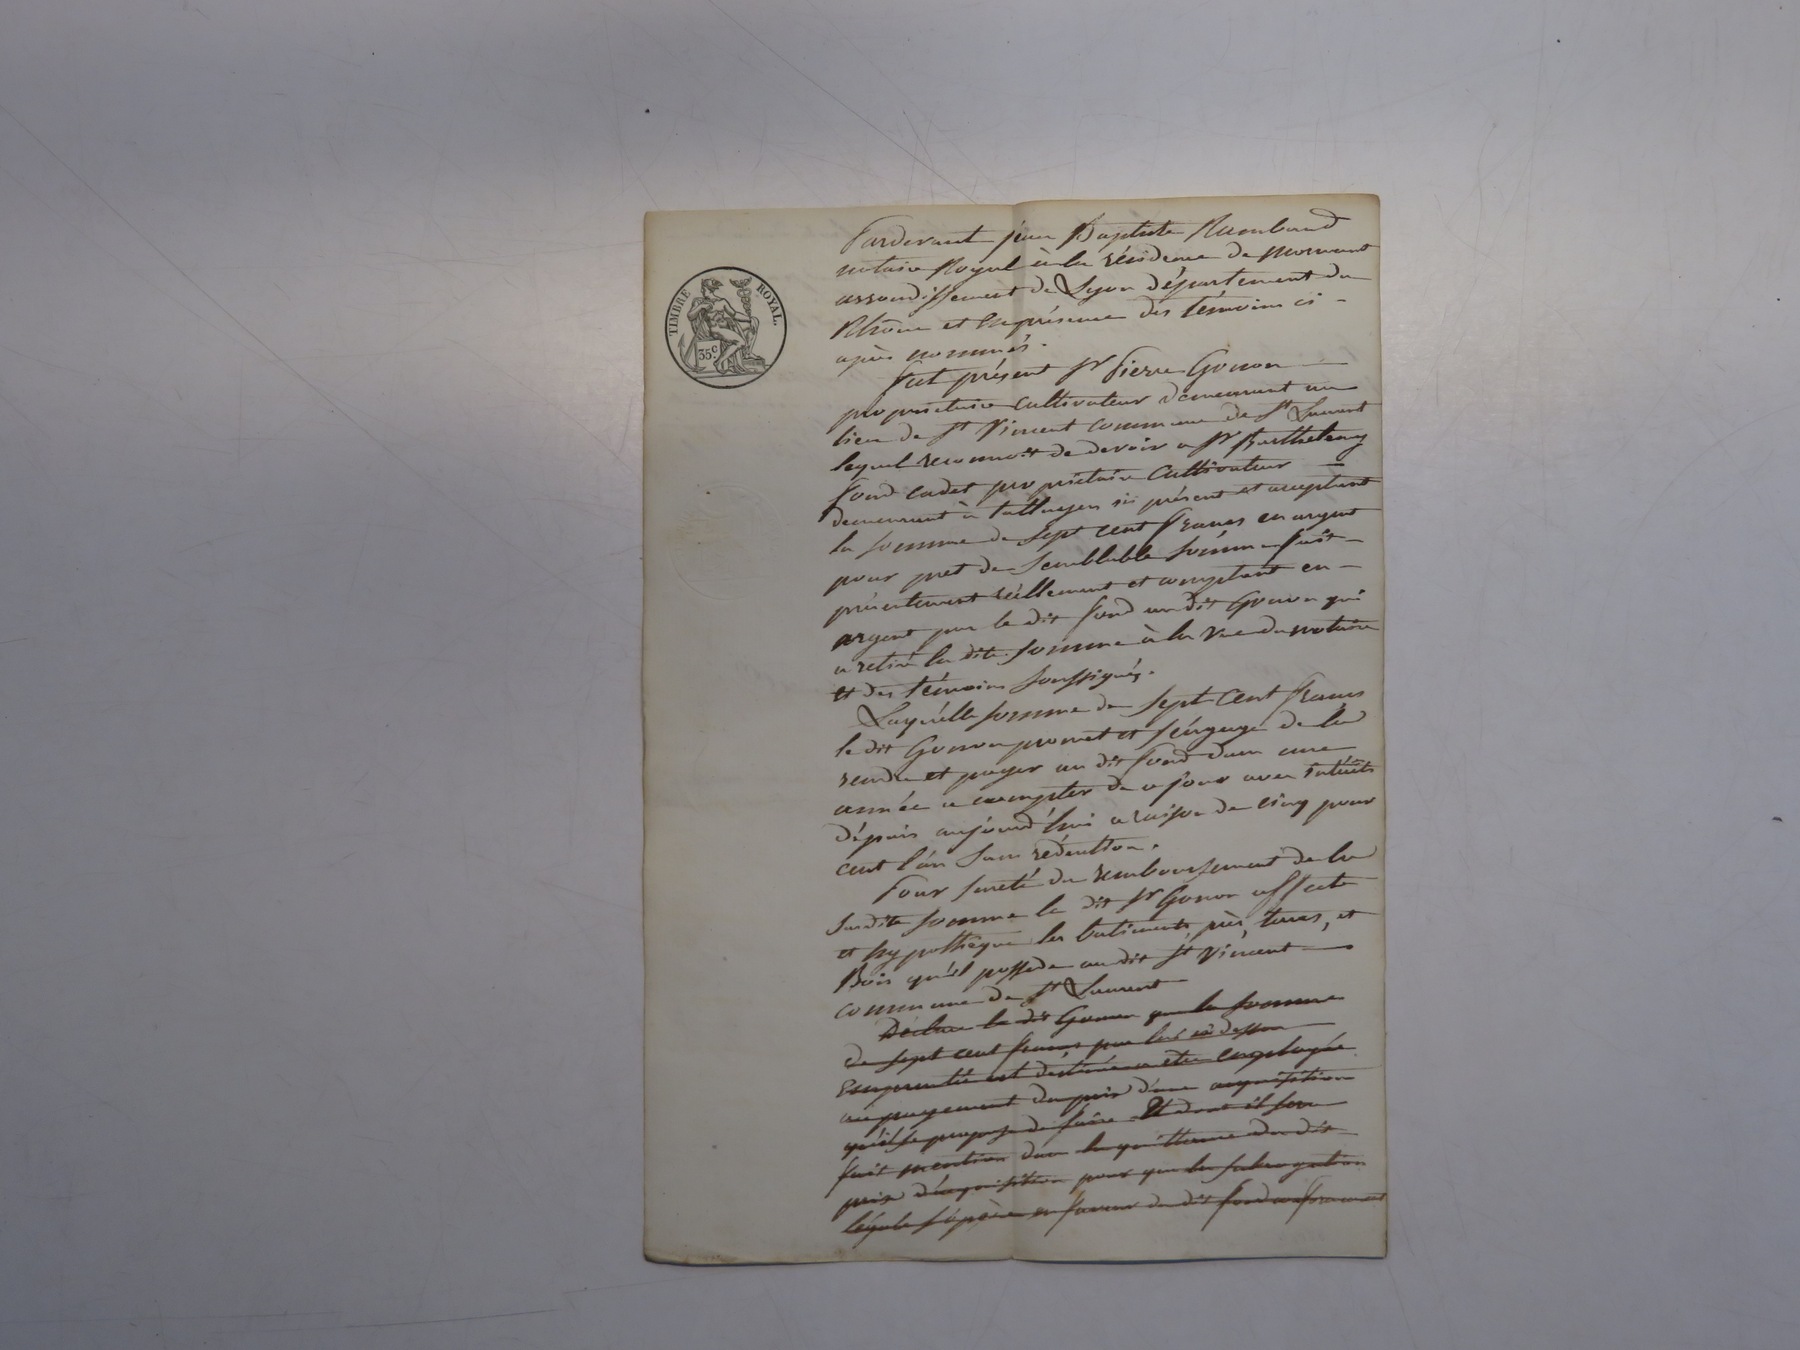 TIMBRE ROYAL.
35c
Pardevant jean Baptiste Rambaud
notaire Royal à la résidence de Mornant
arrondissement de Lyon département du
Rhône et En présence des témoins ci -
après nommés.
fut présent Sr Pierre Gonon
propriétaire cultivateur demeurant au
lieu de St Vincent commune de St Laurent
lequel reconnoit de devoir a Sr Barthelemy
fond cadet propriétaire cultivateur
demeurant à talluyers ici présent et acceptant
la somme de sept cent francs en argent
pour pret de semblable somme fait
présentement réellement et comptant en
argent par le dit fond au dit Gonon qui
a retiré la dite somme à la vue du notaire
et des témoins soussignés.
Laquelle somme de sept cent francs
le dit Gonon promet et s'engage de la
rendre et payer au dit fond dans une
année a compter de ce jour avec intérêts
dépuis aujourd'hui a raison de cinq pour
cent l'an sans réduction.
Pour sureté du remboursement de la
susdite somme le dit Sr Gonon affecte
et hypothèque les batiments, près, terres, et
Bois qu'il possede au dit St Vincent
commune de St Laurent
Déclare le dit Gonon que la somme
de sept cent francs par lui ci dessus
Empruntée est destinée a etre employée
au payement du prix d'une acquisition
qu'il se propose de faire Et dont il sera
fait mention dans la quittance du dit
prix d'acquisition pour que la subrogation
légale s'opère en faveur du dit fond conformement